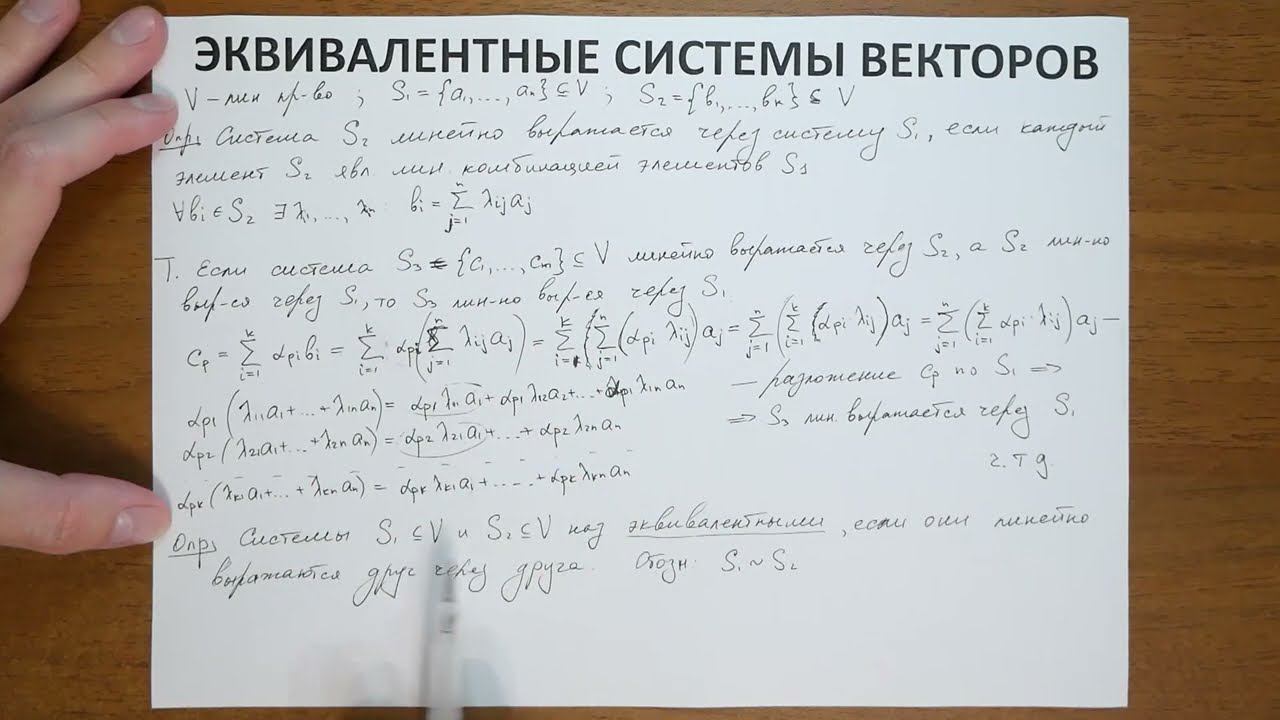 ЭКВИВАЛЕНТНЫЕ СИСТЕМЫ ВЕКТОРОВ
V – лин пр-во ; S₁ = {a₁,...,aₙ} ⊆ V ; S₂ = {b₁,...,bₖ} ⊆ V
Опр. Система S₂ линейно выражается через систему S₁, если каждый
элемент S₂ явл. лин. комбинацией элементов S₁
∀bᵢ ∈ S₂ ∃ λᵢ₁, ..., λᵢₙ : bᵢ = ∑ⱼ₌₁ⁿ λᵢⱼaⱼ
Т. Если система S₃ = {c₁,...,cₘ} ⊆ V линейно выражается через S₂, а S₂ лин-но
выр-ся через S₁, то S₃ лин-но выр-ся через S₁
cₚ = ∑ᵢ₌₁ᵏ αₚᵢbᵢ = ∑ᵢ₌₁ᵏ αₚᵢ(∑ⱼ₌₁ⁿ λᵢⱼaⱼ) = ∑ᵢ₌₁ᵏ (∑ⱼ₌₁ⁿ (αₚᵢ λᵢⱼ)aⱼ = ∑ⱼ₌₁ⁿ (∑ᵢ₌₁ᵏ (αₚᵢ λᵢⱼ)aⱼ = ∑ⱼ₌₁ⁿ (∑ᵢ₌₁ᵏ αₚᵢ · λᵢⱼ)aⱼ —
— разложение cₚ по S₁ ⇒
αₚ₁(λ₁₁a₁+...+λ₁ₙaₙ) = αₚ₁λ₁₁a₁ + αₚ₁λ₁₂a₂+...+αₚ₁λ₁ₙaₙ
⇒ S₃ лин. выражается через S₁
αₚ₂(λ₂₁a₁+...+λ₂ₙaₙ) = αₚ₂λ₂₁a₁+...+αₚ₂λ₂ₙaₙ
ч.т.д.
αₚₖ(λₖ₁a₁+...+λₖₙaₙ) = αₚₖλₖ₁a₁+...+αₚₖλₖₙaₙ
Опр. Системы S₁ ⊆ V и S₂ ⊆ V наз эквивалентными, если они линейно
выражаются друг через друга. Обозн: S₁ ~ S₂